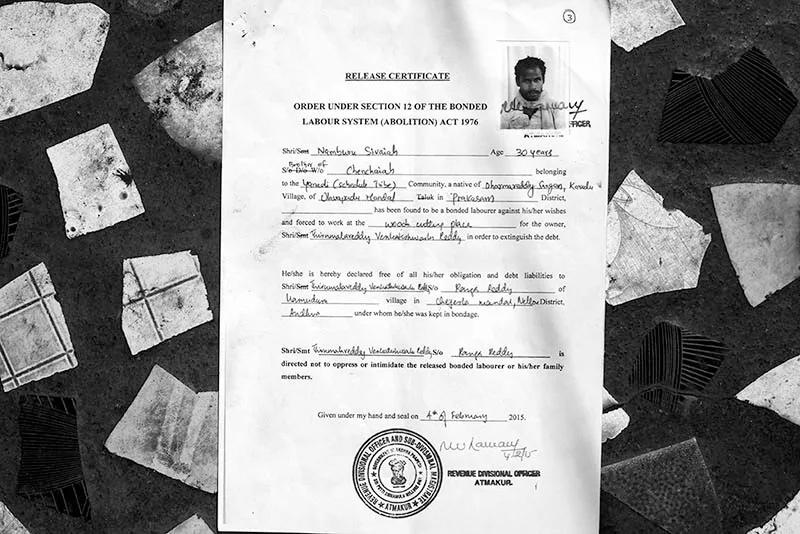 3
RELEASE CERTIFICATE
ORDER UNDER SECTION 12 OF THE BONDED
LABOUR SYSTEM (ABOLITION) ACT 1976
FFICER
ATMAKUR
Shri/Smt Namburu Sivaiah Age 30 years
Brother of
S/o D/o W/o Chenchaiah belonging
to the Yanadi (Schedule Tribe) Community, a native of
Village, of Mandal Taluk in Prakasam District,
has been found to be a bonded labourer against his/her wishes
and forced to work at the wood cutting place for the owner,
Shri/Smt Thirumalareddy Venkateshwarlu Reddy in order to extinguish the debt.
He/she is hereby declared free of all his/her obligation and debt liabilities to
Shri/Smt Thirumalareddy Venkateshwarlu Reddy S/o Ranga Reddy of
village in mandal, Nellore District,
Andhra under whom he/she was kept in bondage.
Shri/Smt Thirumalareddy Venkateshwarlu Reddy S/o Ranga Reddy is
directed not to oppress or intimidate the released bonded labourer or his/her family
members.
Given under my hand and seal on 4th of February 2015.
REVENUE DIVISIONAL OFFICER AND SUB-DIVISIONAL MAGISTRATE
GOVERNMENT OF ANDHRA PRADESH
4/2/15
REVENUE DIVISIONAL OFFICER
ATMAKUR.